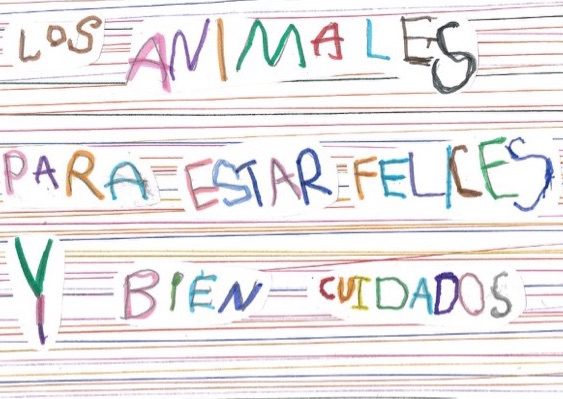 LOS ANIMALES
PARA ESTAR FELICES
Y BIEN CUIDADOS